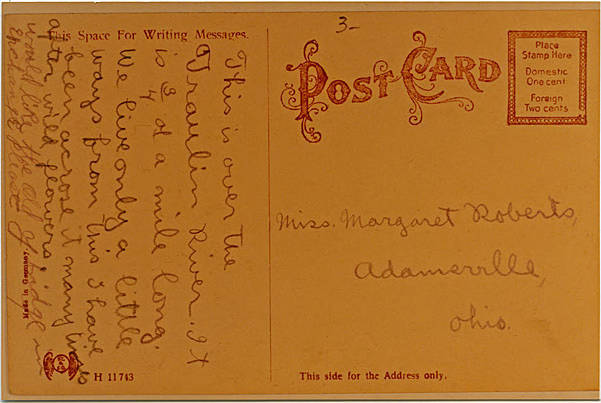 3-
This Space For Writing Messages.
POST CARD
Place
Stamp Here
Domestic
One cent
Foreign
Two cents
This is over the
Traulin River. It
is 3/4 of a mile long.
We live only a little
ways from this I have
been across it many times
after wild flowers
would like the old
Miss. Margaret Roberts,
Adamsville,
Ohio.
Made in Germany.
H 11743
This side for the Address only.